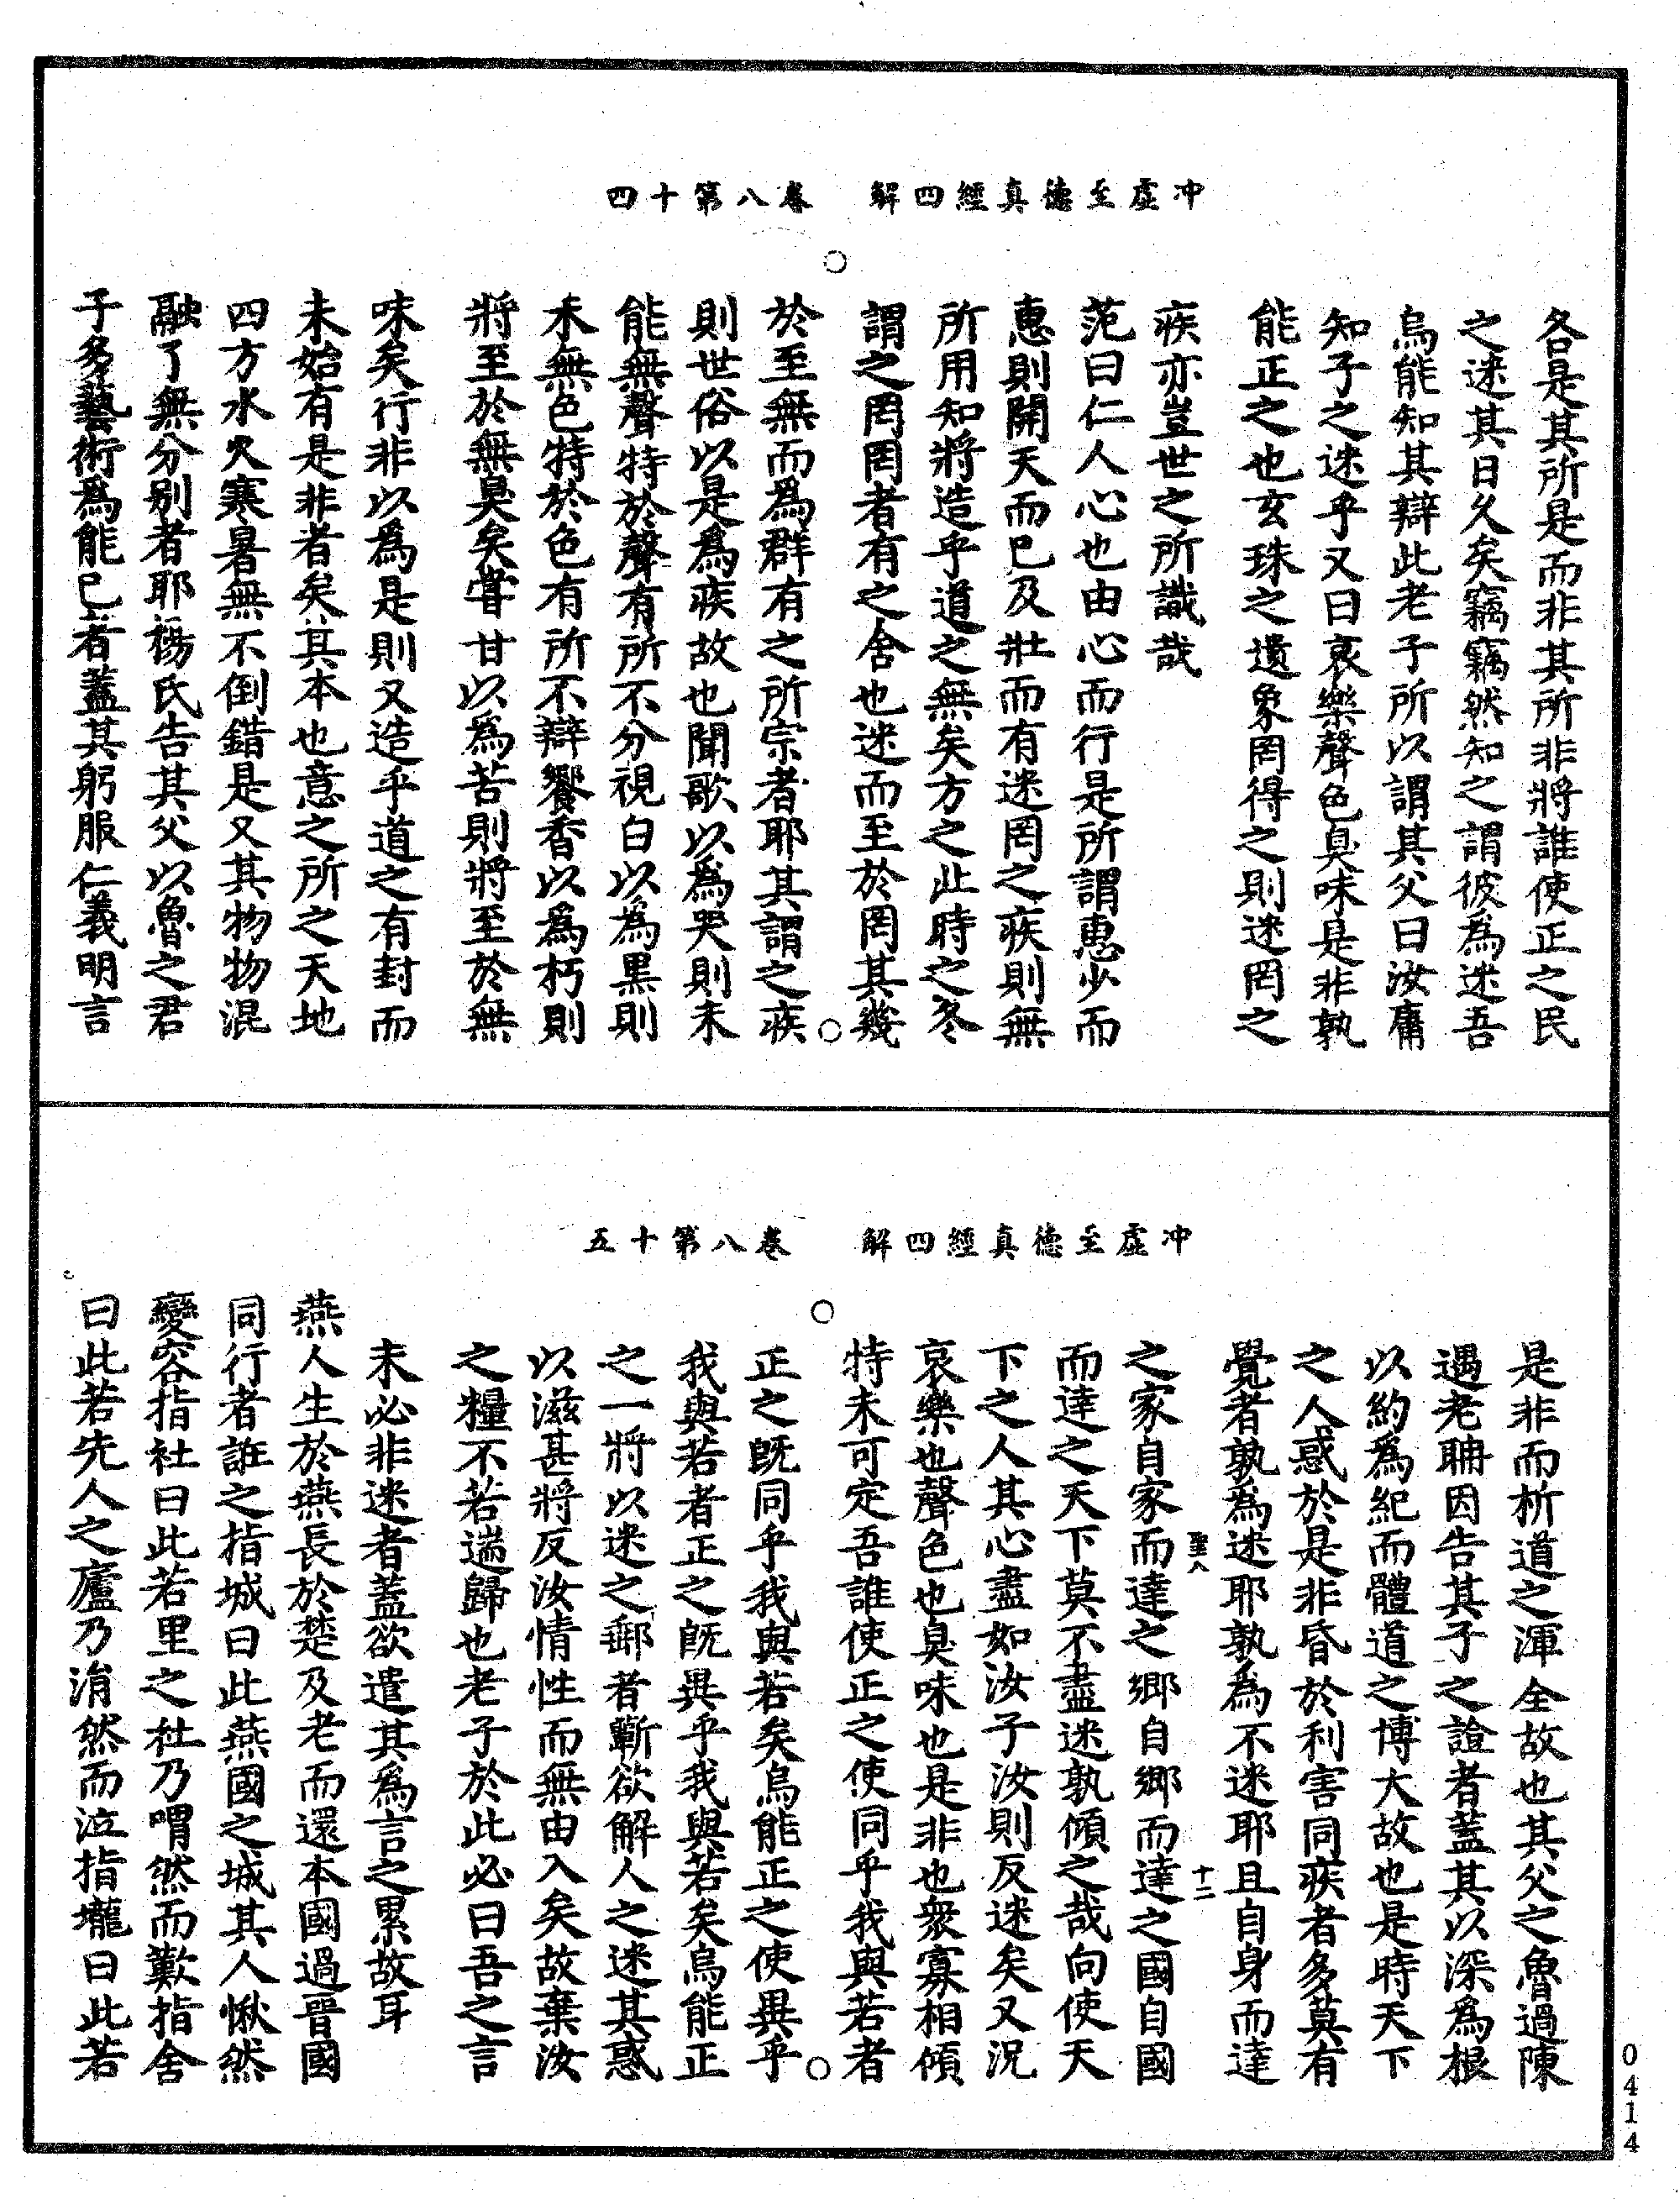 冲虛至德真經四解　卷八第十四
各是其所是而非其所非將誰使正之民
之迷其日久矣竊竊然知之謂彼為迷吾
烏能知其辯此老子所以謂其父曰汝庸
知子之迷乎又曰哀樂聲色臭味是非孰
能正之也玄珠之遺象罔得之則迷罔之
疾亦豈世之所識哉
范曰仁人心也由心而行是所謂惠少而
惠則開天而已及壯而有迷罔之疾則無
所用知將造乎道之無矣方之此時之冬
謂之罔罔者有之舍也迷而至於罔其幾
於至無而為群有之所宗者耶其謂之疾
則世俗以是為疾故也聞歌以為哭則未
能無聲特於聲有所不分視白以為黑則
未無色特於色有所不辯饗香以為朽則
將至於無臭矣嘗甘以為苦則將至於無
味矣行非以為是則又造乎道之有封而
未始有是非者矣其本也意之所之天地
四方水火寒暑無不倒錯是又其物物混
融了無分别者耶楊氏告其父以魯之君
子多藝術為能已者蓋其躬服仁義明言
冲虛至德真經四解　卷八第十五
是非而析道之渾全故也其父之魯過陳
遇老聃因告其子之證者蓋其以深為根
以約為紀而體道之博大故也是時天下
之人惑於是非昏於利害同疾者多莫有
覺者孰為迷耶孰為不迷耶且自身而達
之家自家而達之鄉自鄉而達之國自國
聖八　十二
而達之天下莫不盡迷孰傾之哉向使天
下之人其心盡如汝子汝則反迷矣又況
哀樂也聲色也臭味也是非也衆寡相傾
特未可定吾誰使正之使同乎我與若者
正之旣同乎我與若矣烏能正之使異乎
我與若者正之旣異乎我與若矣烏能正
之一將以迷之郵者蘄欲解人之迷其惑
以滋甚將反汝情性而無由入矣故棄汝
之糧不若遄歸也老子於此必曰吾之言
未必非迷者蓋欲遣其為言之累故耳
燕人生於燕長於楚及老而還本國過晉國
同行者誑之指城曰此燕國之城其人愀然
變容指社曰此若里之社乃喟然而歎指舍
曰此若先人之廬乃涓然而泣指壠曰此若
0414